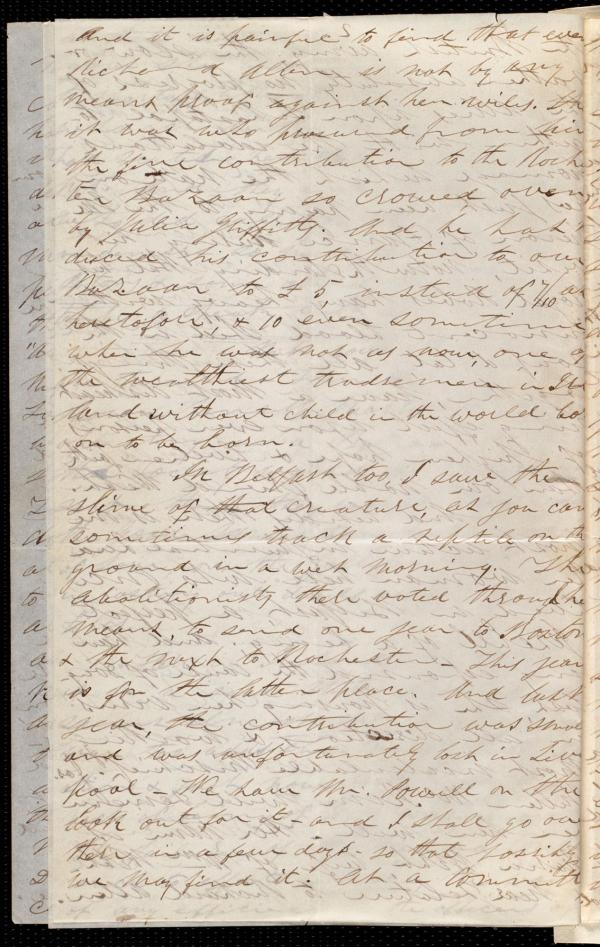 And it is painful to find that even
Richard D Allen is not by any
means proof against her wiles. He
it was who procured from
the fine contribution to the Roche
ter Bazaar so crowed over
by Julia Griffiths. And he has
duced his contribution to our
Bazaar to £5, instead of 7/10 as
heretofore, & 10 even sometime
when he was not as now, one of
the wealthiest tradsemen in Ire
land without child in the world bo
or to be born.
In Belfast too, I saw the
slime of that creature, as you can
sometimes track a reptile on th
ground in a wet morning. The
abolitionists there voted through he
means, to send one year to Boston
& the next to Rochester - This year
is for the latter place. And last
year, the contribution was small
and was unfortunately lost in Live
pool - We have Mr. Powell on the
look out for it - and I shall go ove
there in a few days - so that possibly
we may find it. At a committ